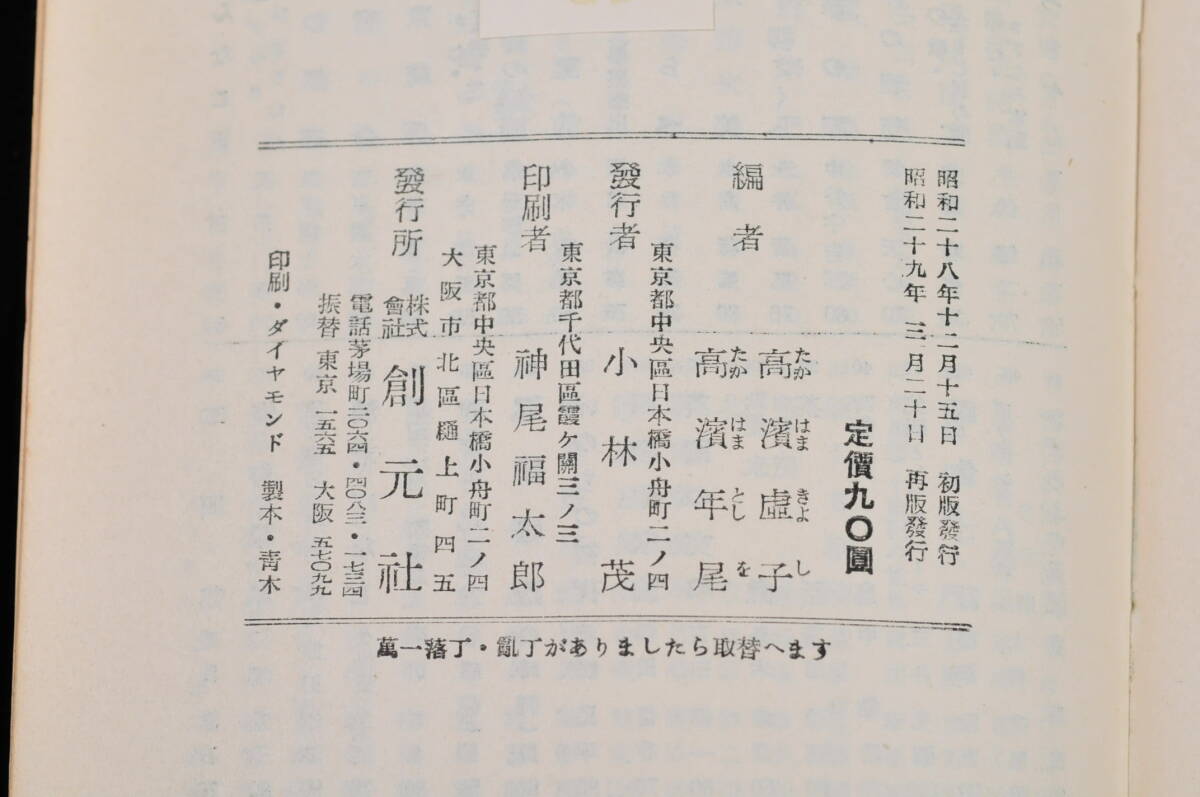 昭和二十八年十二月十五日　初版發行
昭和二十九年　三月二十日　再版發行
定價九〇圓
編者
高濱虛子
たかはまきよし
高濱年尾
たかはまとしを
發行者
東京都中央區日本橋小舟町二ノ四
小林茂
印刷者
東京都千代田區霞ケ關三ノ三
神尾福太郎
東京都中央區日本橋小舟町二ノ四
大阪市北區樋上町四五
發行所
株式會社 創元社
電話茅場町二〇六四・四〇八三・一七三四
振替 東京 一五六五　大阪 五七〇九九
印刷・ダイヤモンド　製本・靑木
萬一落丁・亂丁がありましたら取替へます